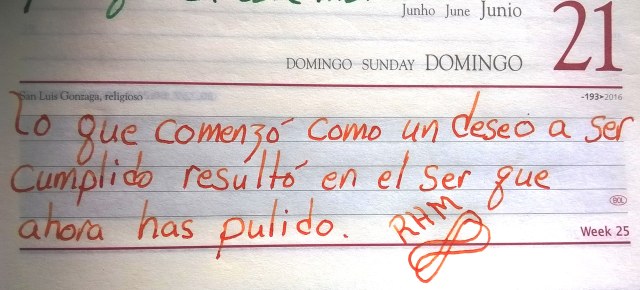 Junho June Junio
21
DOMINGO SUNDAY DOMINGO
San Luis Gonzaga, religioso
-193▸2016
Lo que comenzó como un deseo a ser
cumplido resultó en el ser que
ahora has pulido.
RHM
BOL
Week 25